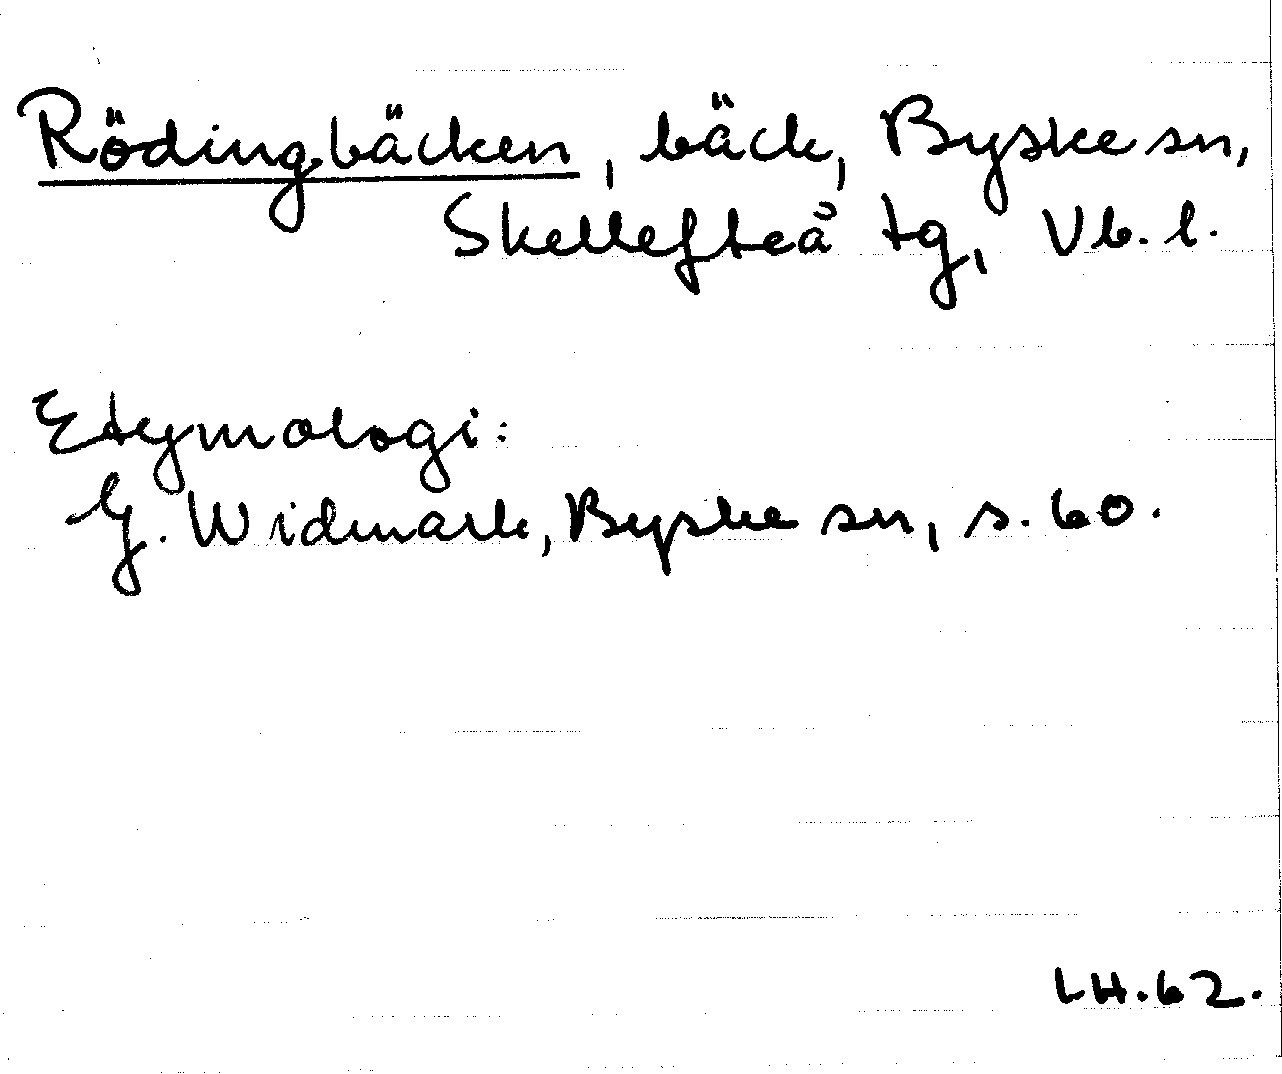 Rödingbäcken, bäck, Byske sn,
Skellefteå tg, Vb. l.
Etymologi:
G. Widmark, Byske sn, s. 60.
LH. 62.